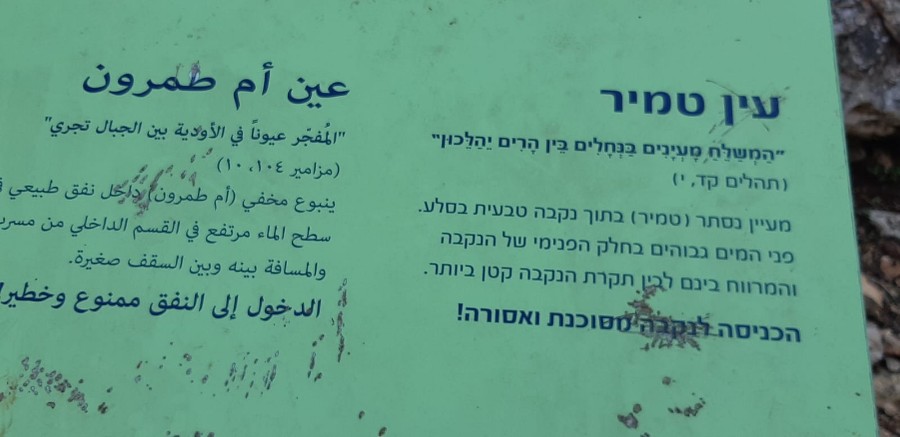 עין טמיר
"הַמְשַׁלֵּחַ מַעְיָנִים בַּנְּחָלִים בֵּין הָרִים יְהַלֵּכוּן"
(תהלים קד, י)
מעיין נסתר (טמיר) בתוך נקבה טבעית בסלע.
פני המים גבוהים בחלק הפנימי של הנקבה
והמרווח בינם לבין תקרת הנקבה קטן ביותר.
הכניסה לנקבה מסוכנת ואסורה!
عين أم طمرون
"المُفجّر عيوناً في الأودية بين الجبال تجري"
(مزامير ١٠٤، ١٠)
ينبوع مخفي (أم طمرون) داخل نفق طبيعي
سطح الماء مرتفع في القسم الداخلي من
والمسافة بينه وبين السقف صغيرة.
الدخول إلى النفق ممنوع وخطير!